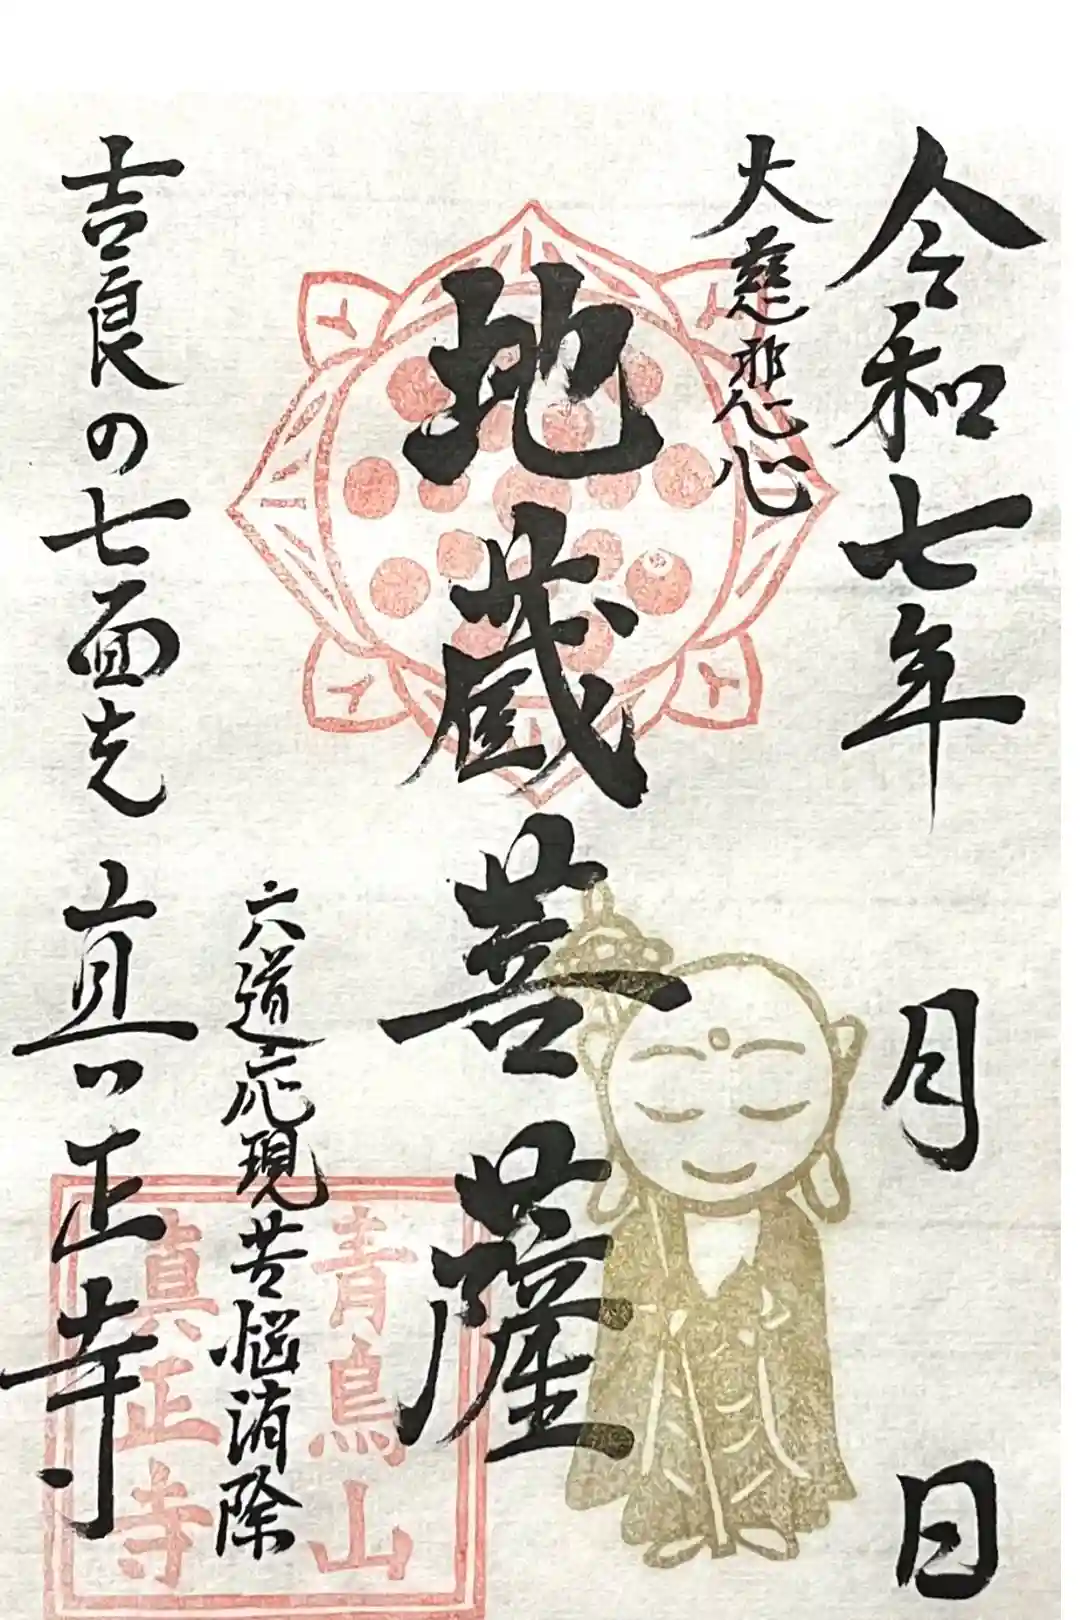 令和七年 月 日
大慈悲心
地蔵菩薩
六道応現苦悩消除
吉良の七面堂 真正寺
青鳥山
眞正寺